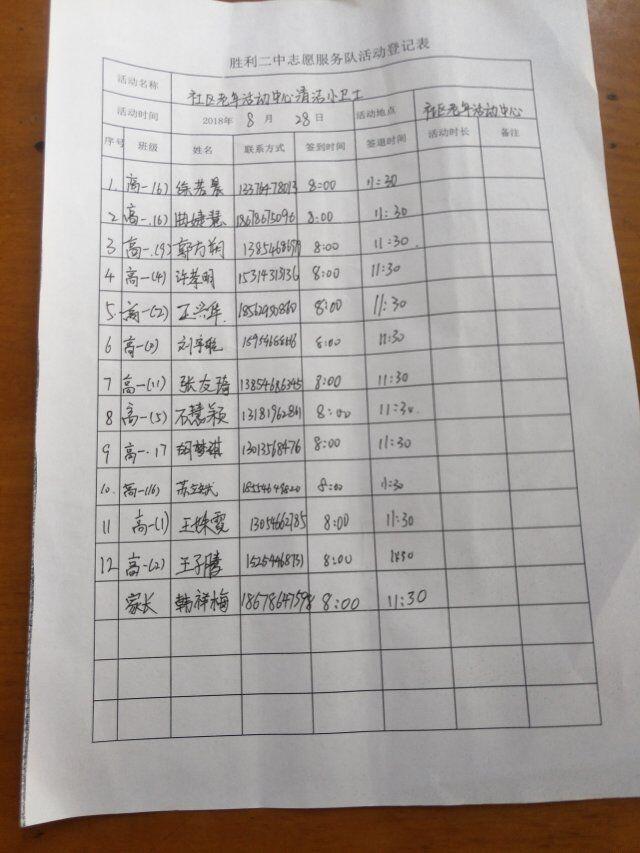 胜利二中志愿服务队活动登记表
活动名称 社区老年活动中心清洁小卫士
活动时间 2018年 8 月 28 日 活动地点 社区老年活动中心
序号 班级 姓名 联系方式 签到时间 签退时间 活动时长 备注
1. 高一(6) 徐芳晨 13376478013 8:00 11:30
2 高一.(6) 曲婕慧 18678675096 8:00 11:30
3 高一.(9) 郭方翔 8:00 11:30
4 高一(4) 许孝明 15314313136 8:00 11:30
5. 高一(2) 王兴华. 8:00 11:30
6 高一 刘宇晗 8:00 11:30
7 高一(11) 张友琦 13854686345 8:00 11:30
8 高一(5) 石慧颖 13181962861 8:00 11:30.
9 高一.17 胡梦琪 13013568476 8:00 11:30
10. 高一(6) 8:00 11:30
11 高一(1) 王姝霞 13054662785 8:00 11:30
12 高一(2) 王子腾 15254468731 8:00 11:30
家长 韩祥梅 18678647598 8:00 11:30